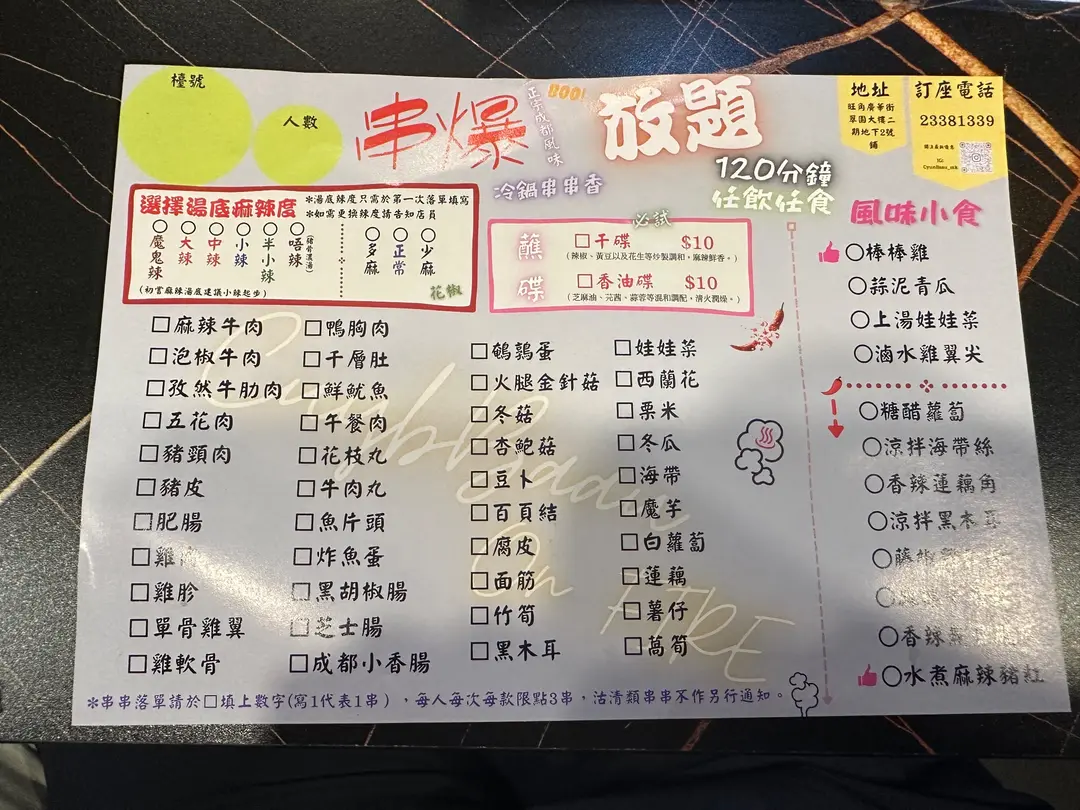 檯號
人數
串爆
正宗成都風味
BOO!
放題
冷鍋串串香
120分鐘
任飲任食
地址
旺角廣華街
翠園大樓二
期地下2號
舖
訂座電話
23381339
IG:
選擇湯底麻辣度
*湯底辣度只需於第一次落單填寫
*如需更換辣度請告知店員
魔鬼辣
大辣
中辣
小辣
半小辣
唔辣(豬骨濃湯)
多麻
正常
少麻
(初嘗麻辣湯底建議小辣起步)
花椒
必試
蘸碟
□干碟 $10
(辣椒、黃豆以及花生等炒製調和，麻辣鮮香。)
□香油碟 $10
(芝麻油、芫茜、蒜蓉等混和調配，清火潤燥。)
□麻辣牛肉
□泡椒牛肉
□孜然牛肋肉
□五花肉
□豬頸肉
□豬皮
□肥腸
□雞
□雞胗
□單骨雞翼
□雞軟骨
□鴨胸肉
□千層肚
□鮮魷魚
□午餐肉
□花枝丸
□牛肉丸
□魚片頭
□炸魚蛋
□黑胡椒腸
□芝士腸
□成都小香腸
□鵪鶉蛋
□火腿金針菇
□冬菇
□杏鮑菇
□豆卜
□百頁結
□腐皮
□面筋
□竹筍
□黑木耳
□娃娃菜
□西蘭花
□粟米
□冬瓜
□海帶
□魔芋
□白蘿蔔
□蓮藕
□薯仔
□萵筍
風味小食
○棒棒雞
○蒜泥青瓜
○上湯娃娃菜
○滷水雞翼尖
○糖醋蘿蔔
○涼拌海帶絲
○香辣蓮藕角
○涼拌黑木耳
○藤椒
○香辣
○水煮麻辣豬紅
On FIRE
*串串落單請於□填上數字(寫1代表1串)，每人每次每款限點3串，沽清類串串不作另行通知。